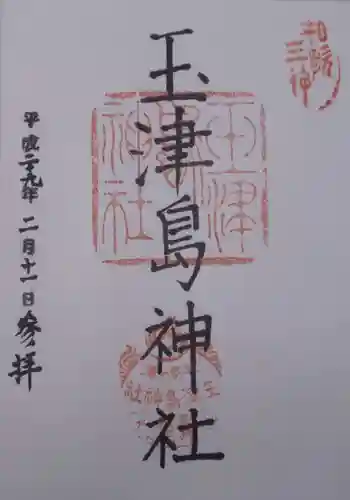 和歌三神
玉津島神社
平成二十九年 二月十一日 参拝
玉津島神社